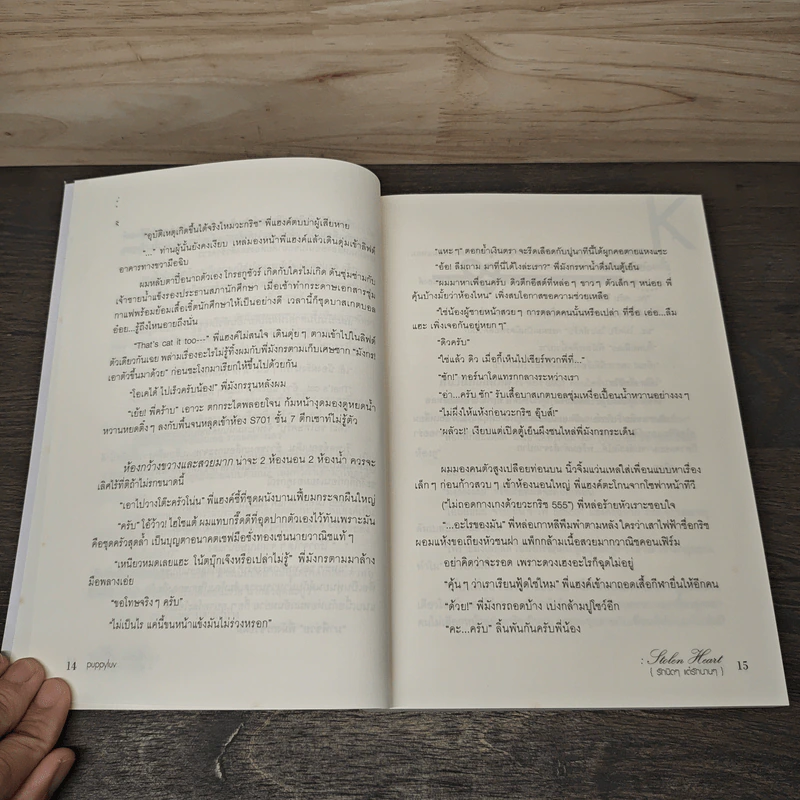 "อุบัติเหตุเกิดขึ้นได้จริงไหมวะกริช" พี่แฮงค์ตบบ่าผู้เสียหาย
"..." ท่านผู้นั้นยังคงเงียบ เหล่มองหน้าพี่แฮงค์แล้วเดินดุ่มเข้าลิฟต์
อาคารทางขวามือฉิบ
ผมหลับตาปี๋อนาถตัวเอง โกรธกูชัวร์ เกิดกับใครไม่เกิด ดันซุ่มซ่ามกับ
เจ้าชายน้ำแข็งรองประธานสภานักศึกษา เมื่อเช้าทำกระดาษเอกสารชุ่ม
กาแฟพร้อมย้อมเสื้อเชิ้ตนักศึกษาให้เป็นอย่างดี เวลานี้ก็ชุดบาสเกตบอล
อ๋อย...รู้ถึงไหนอายถึงนั่น
"That's cat it too---" พี่แฮงค์ไม่สนใจ เดินดุ่ยๆ ตามเข้าไปในลิฟต์
ตัวเดียวกันเฉย พล่ามเรื่องอะไรไม่รู้ทิ้งผมกับพี่มังกรตามเก็บเศษซาก "มังกร!
เอาตัวขึ้นมาด้วย" ก่อนชะโงกมาเรียกให้ขึ้นไปด้วยกัน
"โอเคได้ ไปเร็วครับน้อง!" พี่มังกรรุนหลังผม
"เย้ย! พี่คร้าบ" เอาวะ ตกกระไดพลอยโจน ก้มหน้างุดมองดูหยดน้ำ
หวานหยดติ๋งๆ ลงกับพื้นจนหลุดเข้าห้อง S701 ชั้น 7 ตึกเซาท์ไม่รู้ตัว
ห้องกว้างขวางและสวยมาก น่าจะ 2 ห้องนอน 2 ห้องน้ำ ควรจะ
เลิศไร้ที่ติถ้าไม่รกขนาดนี้
"เอาไปวางโต๊ะครัวโน่น" พี่แฮงค์ชี้ที่ชุดผนังบานเฟี้ยมกระจกผืนใหญ่
"ครับ" โอ้ว้าว! ไฮโซแต้ ผมแทบกรี๊ดดีที่อุดปากตัวเองไว้ทันเพราะมัน
คือชุดครัวสุดล้ำ เป็นบุญตาอนาคตเชฟมือชั่งตวงเช่นนายวานิชแท้ๆ
"เหนียวหมดเลยแฮะ โน้ตบุ๊กเจ๊งหรือเปล่าไม่รู้" พี่มังกรตามมาล้าง
มือพลางเอ่ย
"ขอโทษจริงๆ ครับ"
"ไม่เป็นไร แค่นี้ขนหน้าแข้งมันไม่ร่วงหรอก"
14 puppyluv
"แหะๆ" ตอกย้ำเงินตรา จะรีดเลือดกับปูนาทีนี้ได้ผูกคอตายแหงแซะ
"อ้อ! ลืมถาม มาที่นี่ได้ไงล่ะเรา?" พี่มังกรหาน้ำดื่มในตู้เย็น
"ผมมาหาเพื่อนครับ ติวตึกอีสต์ที่หล่อๆ ขาวๆ ตัวเล็กๆ หน่อย พี่
คุ้นบ้างมั้ยว่าห้องไหน" เพิ่งสบโอกาสขอความช่วยเหลือ
"ใช่น้องผู้ชายหน้าสวย การตลาดคนนั้นหรือเปล่า ที่ชื่อ เอ่อ...ลืม
แฮะ เพิ่งเจอกันอยู่หยกๆ"
"ติวครับ"
"ใช่แล้ว ติว เมื่อกี้เห็นไปเชียร์พวกพี่ที่..."
"ซัก!" ทอร์นาโดแทรกกลางระหว่างเรา
"อ่า...ครับ ซัก" รับเสื้อบาสเกตบอลชุ่มเหงื่อเปื้อนน้ำหวานอย่างงงๆ
"ไม่ผึ่งให้แห้งก่อนวะกริช อุ๊บส์!"
"ผลัวะ!" เงียบแต่เปิดตู้เย็นผึงชนไหล่พี่มังกรกระเด็น
ผมมองคนตัวสูงเปลือยท่อนบน นิ้วจิ้มแว่นเหล่ใส่เพื่อนแบบหาเรื่อง
เล็กๆ ก่อนก้าวสวบๆ เข้าห้องนอนใหญ่ พี่แฮงค์ตะโกนจากโซฟาหน้าทีวี
("ไม่ถอดกางเกงด้วยวะกริช 555") พี่หล่อร้ายหัวเราะชอบใจ
"...อะไรของมัน" พี่หล่อเกาหลีพึมพำตามหลังใครว่าเสาไฟฟ้าชื่อกริช
ผอมแห้งขอเถียงหัวชนฝา แพ็กกล้ามเนื้อสวยมากวาณิชคอนเฟิร์ม
อย่าคิดว่าจะรอด เพราะดวงเฮงอะไรก็ฉุดไม่อยู่
"คุ้นๆ ว่าเราเรียนฟู้ดใช่ไหม" พี่แฮงค์เข้ามาถอดเสื้อกีฬายื่นให้อีกคน
"ด้วย!" พี่มังกรถอดบ้าง เบ่งกล้ามปูโชว์อีก
"คะ...ครับ" ลิ้นพันกันครับพี่น้อง
: Stolen Heart
( รักนิดๆ แต่รักนานๆ ) 15